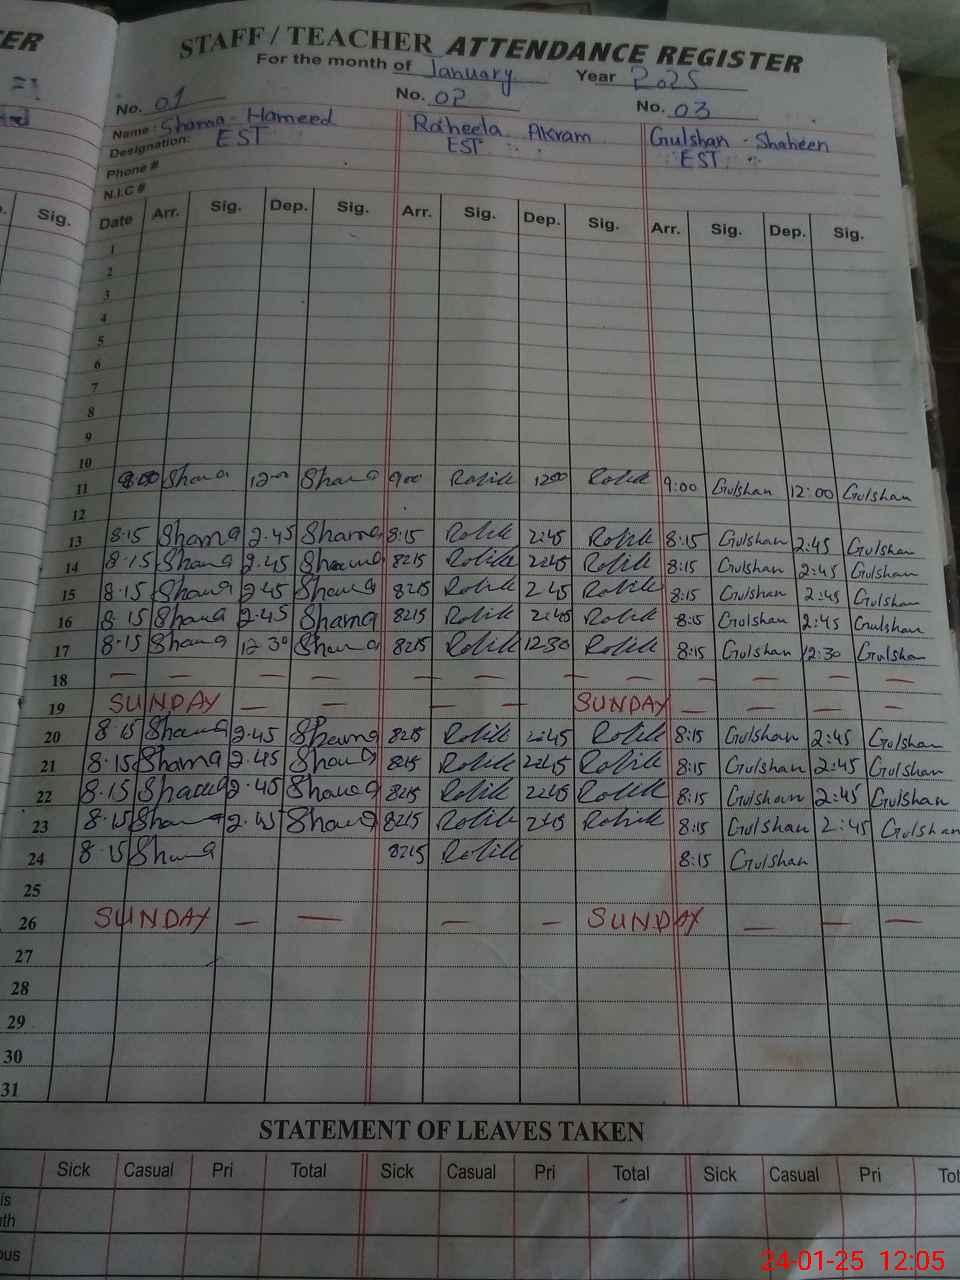 ER
STAFF / TEACHER ATTENDANCE REGISTER
For the month of January Year 2025
No. 01 No. 02 No. 03
Name: Shama - Hameed Raheela Akram Gulshan - Shaheen
Designation: EST EST EST
Phone #
N.I.C #
Sig. Date Arr. Sig. Dep. Sig. Arr. Sig. Dep. Sig. Arr. Sig. Dep. Sig.
1
2
3
4
5
6
7
8
9
10
11 Shama Shama 9:00 Gulshan 12:00 Gulshan
12
13 8·15 Shama 2·45 Shama 8:15 2:45 8:15 Gulshan 2:45 Gulshan
14 8·15 Shama 2·45 Shama 8:15 2:45 8:15 Gulshan 2:45 Gulshan
15 8·15 Shama 2·45 Shama 8:15 2:45 8:15 Gulshan 2:45 Gulshan
16 8·15 Shama 2·45 Shama 8:15 2:45 8:15 Gulshan 2:45 Gulshan
17 8·15 Shama 12·30 Shama 8:15 12:30 8:15 Gulshan 12:30 Gulshan
18 — — — — — — — — — — — —
19 SUNDAY — — — — SUNDAY — — — —
20 8·15 Shama 2·45 Shama 8:15 2:45 8:15 Gulshan 2:45 Gulshan
21 8·15 Shama 2·45 Shama 8:15 2:45 8:15 Gulshan 2:45 Gulshan
22 8·15 Shama 2·45 Shama 8:15 2:45 8:15 Gulshan 2:45 Gulshan
23 8·15 Shama 2·45 Shama 8:15 2:45 8:15 Gulshan 2:45 Gulshan
24 8·15 Shama 8:15 8:15 Gulshan
25
26 SUNDAY — — — — SUNDAY — — —
27
28
29
30
31
STATEMENT OF LEAVES TAKEN
Sick Casual Pri Total Sick Casual Pri Total Sick Casual Pri Tot
is
th
ous
24-01-25 12:05